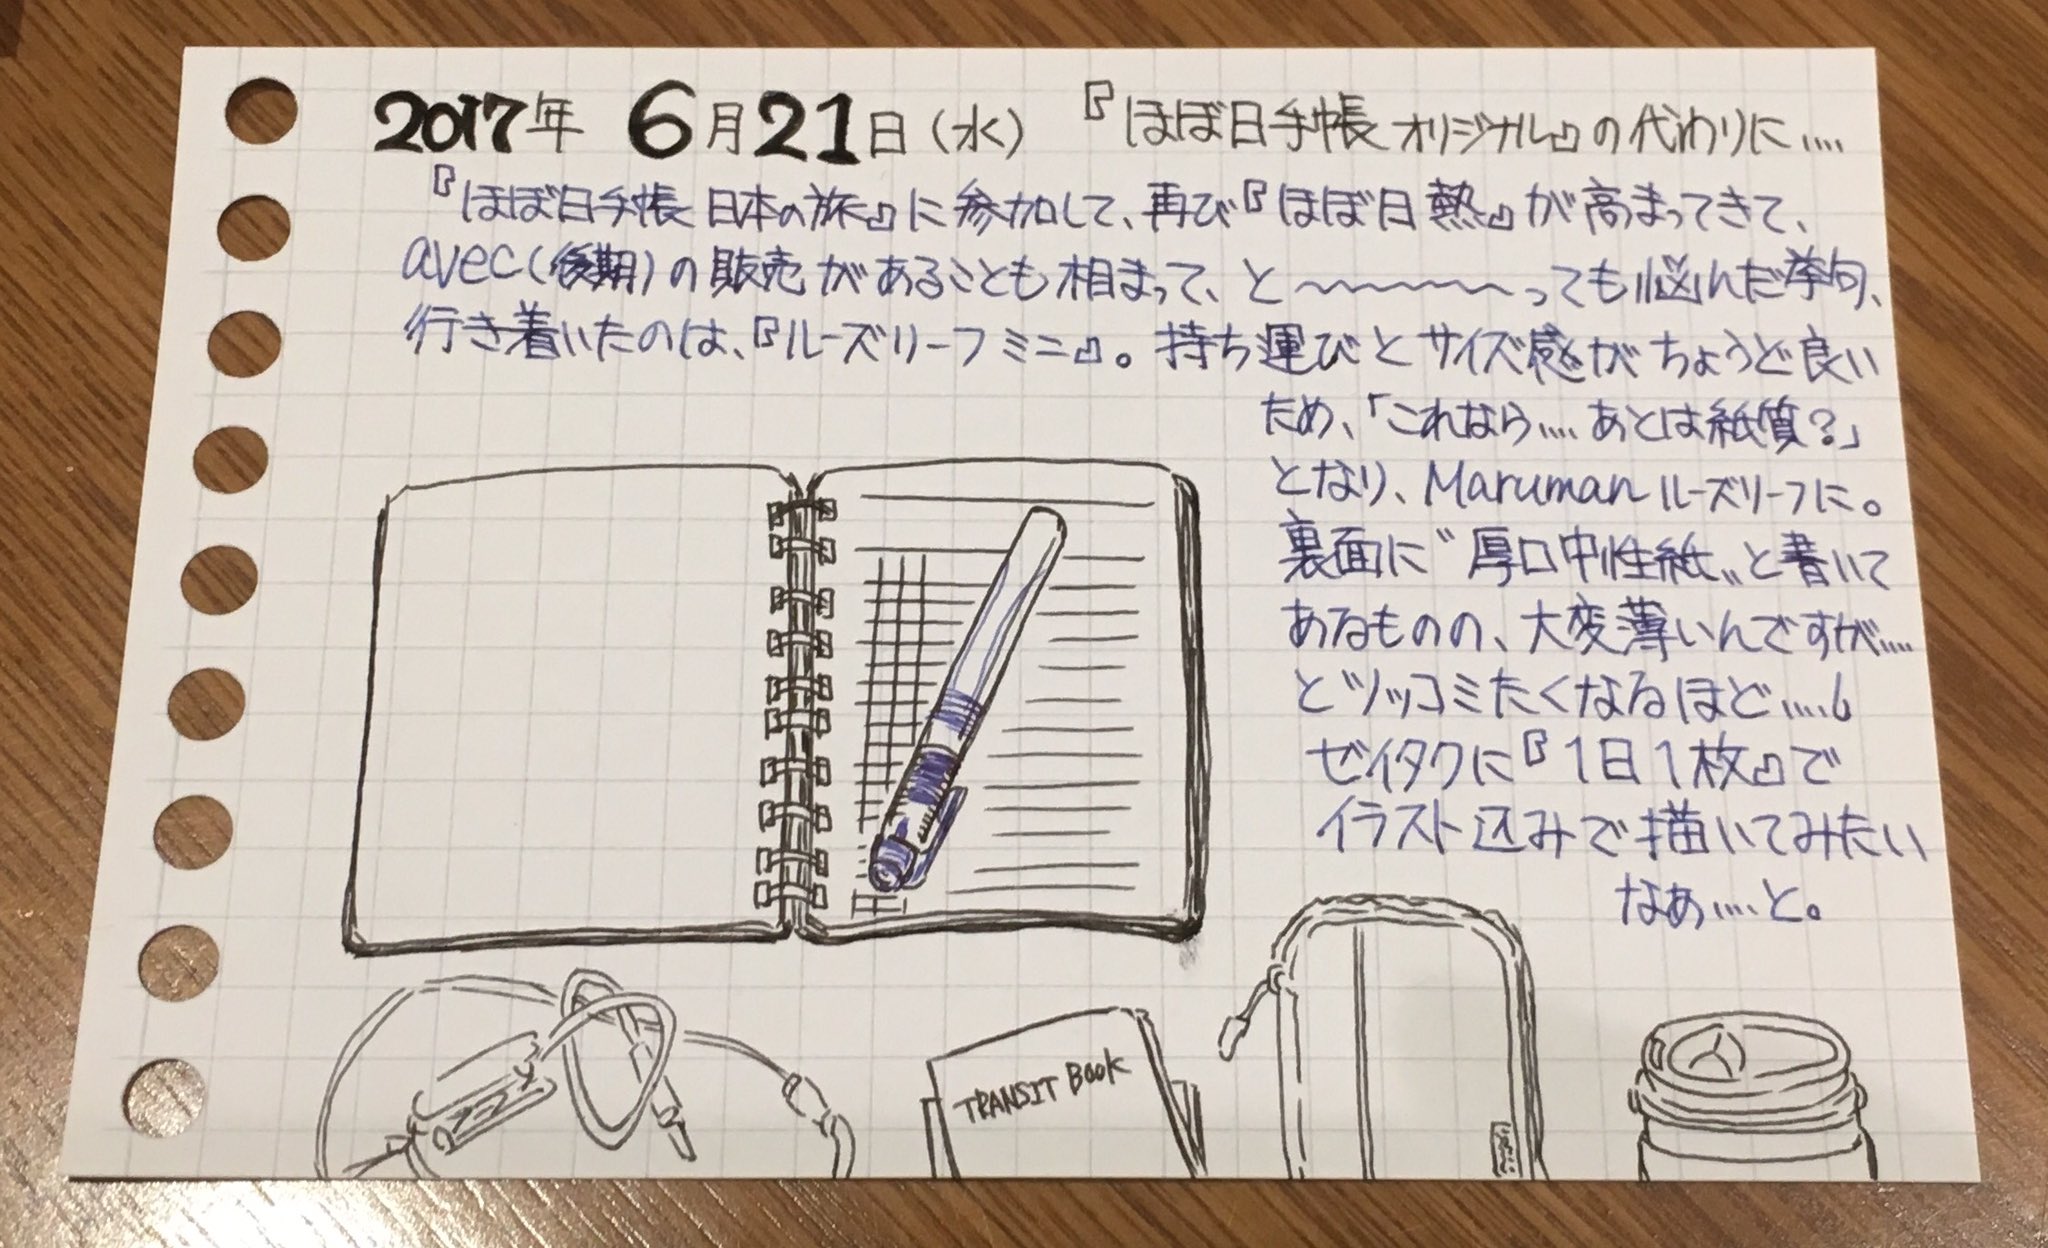 2017年 6月21日(水) 『ほぼ日手帳オリジナル』の代わりに....
『ほぼ日手帳 日本の旅』に参加して、再び『ほぼ日熱』が高まってきて、
avec(後期)の販売があることも相まって、と〜〜〜〜〜っても悩んだ挙句、
行き着いたのは、『ルーズリーフミニ』。持ち運びとサイズ感がちょうど良い
ため、「これなら.... あとは紙質?」
となり、Maruman ルーズリーフに。
裏面に〝厚口中性紙〟と書いて
あるものの、大変薄いんですが....
とツッコミたくなるほど....。
ゼイタクに『1日1枚』で
イラスト込みで描いてみたい
なぁ....と。
TRANSIT BOOK